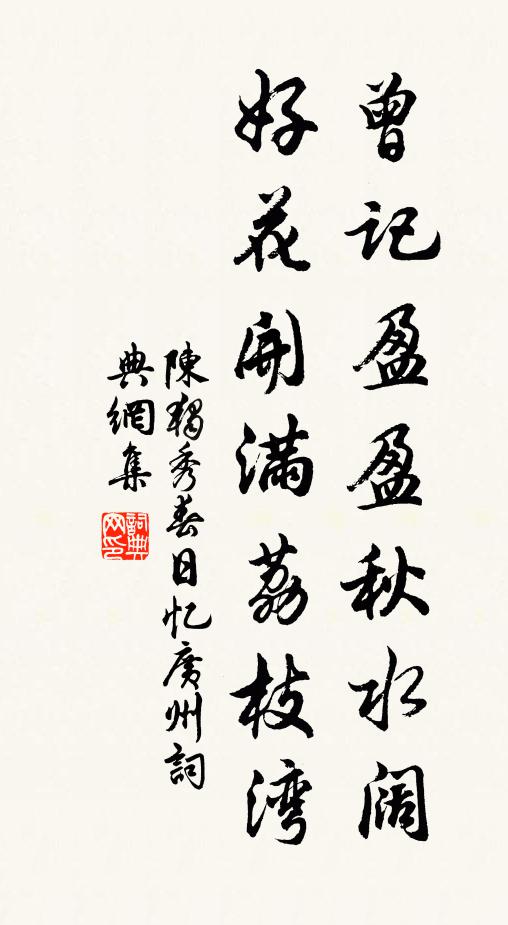 曾记盈盈秋水阔
好花开满荔枝湾
陳獨秀春日忆廣州詞
典網集
詞典网印